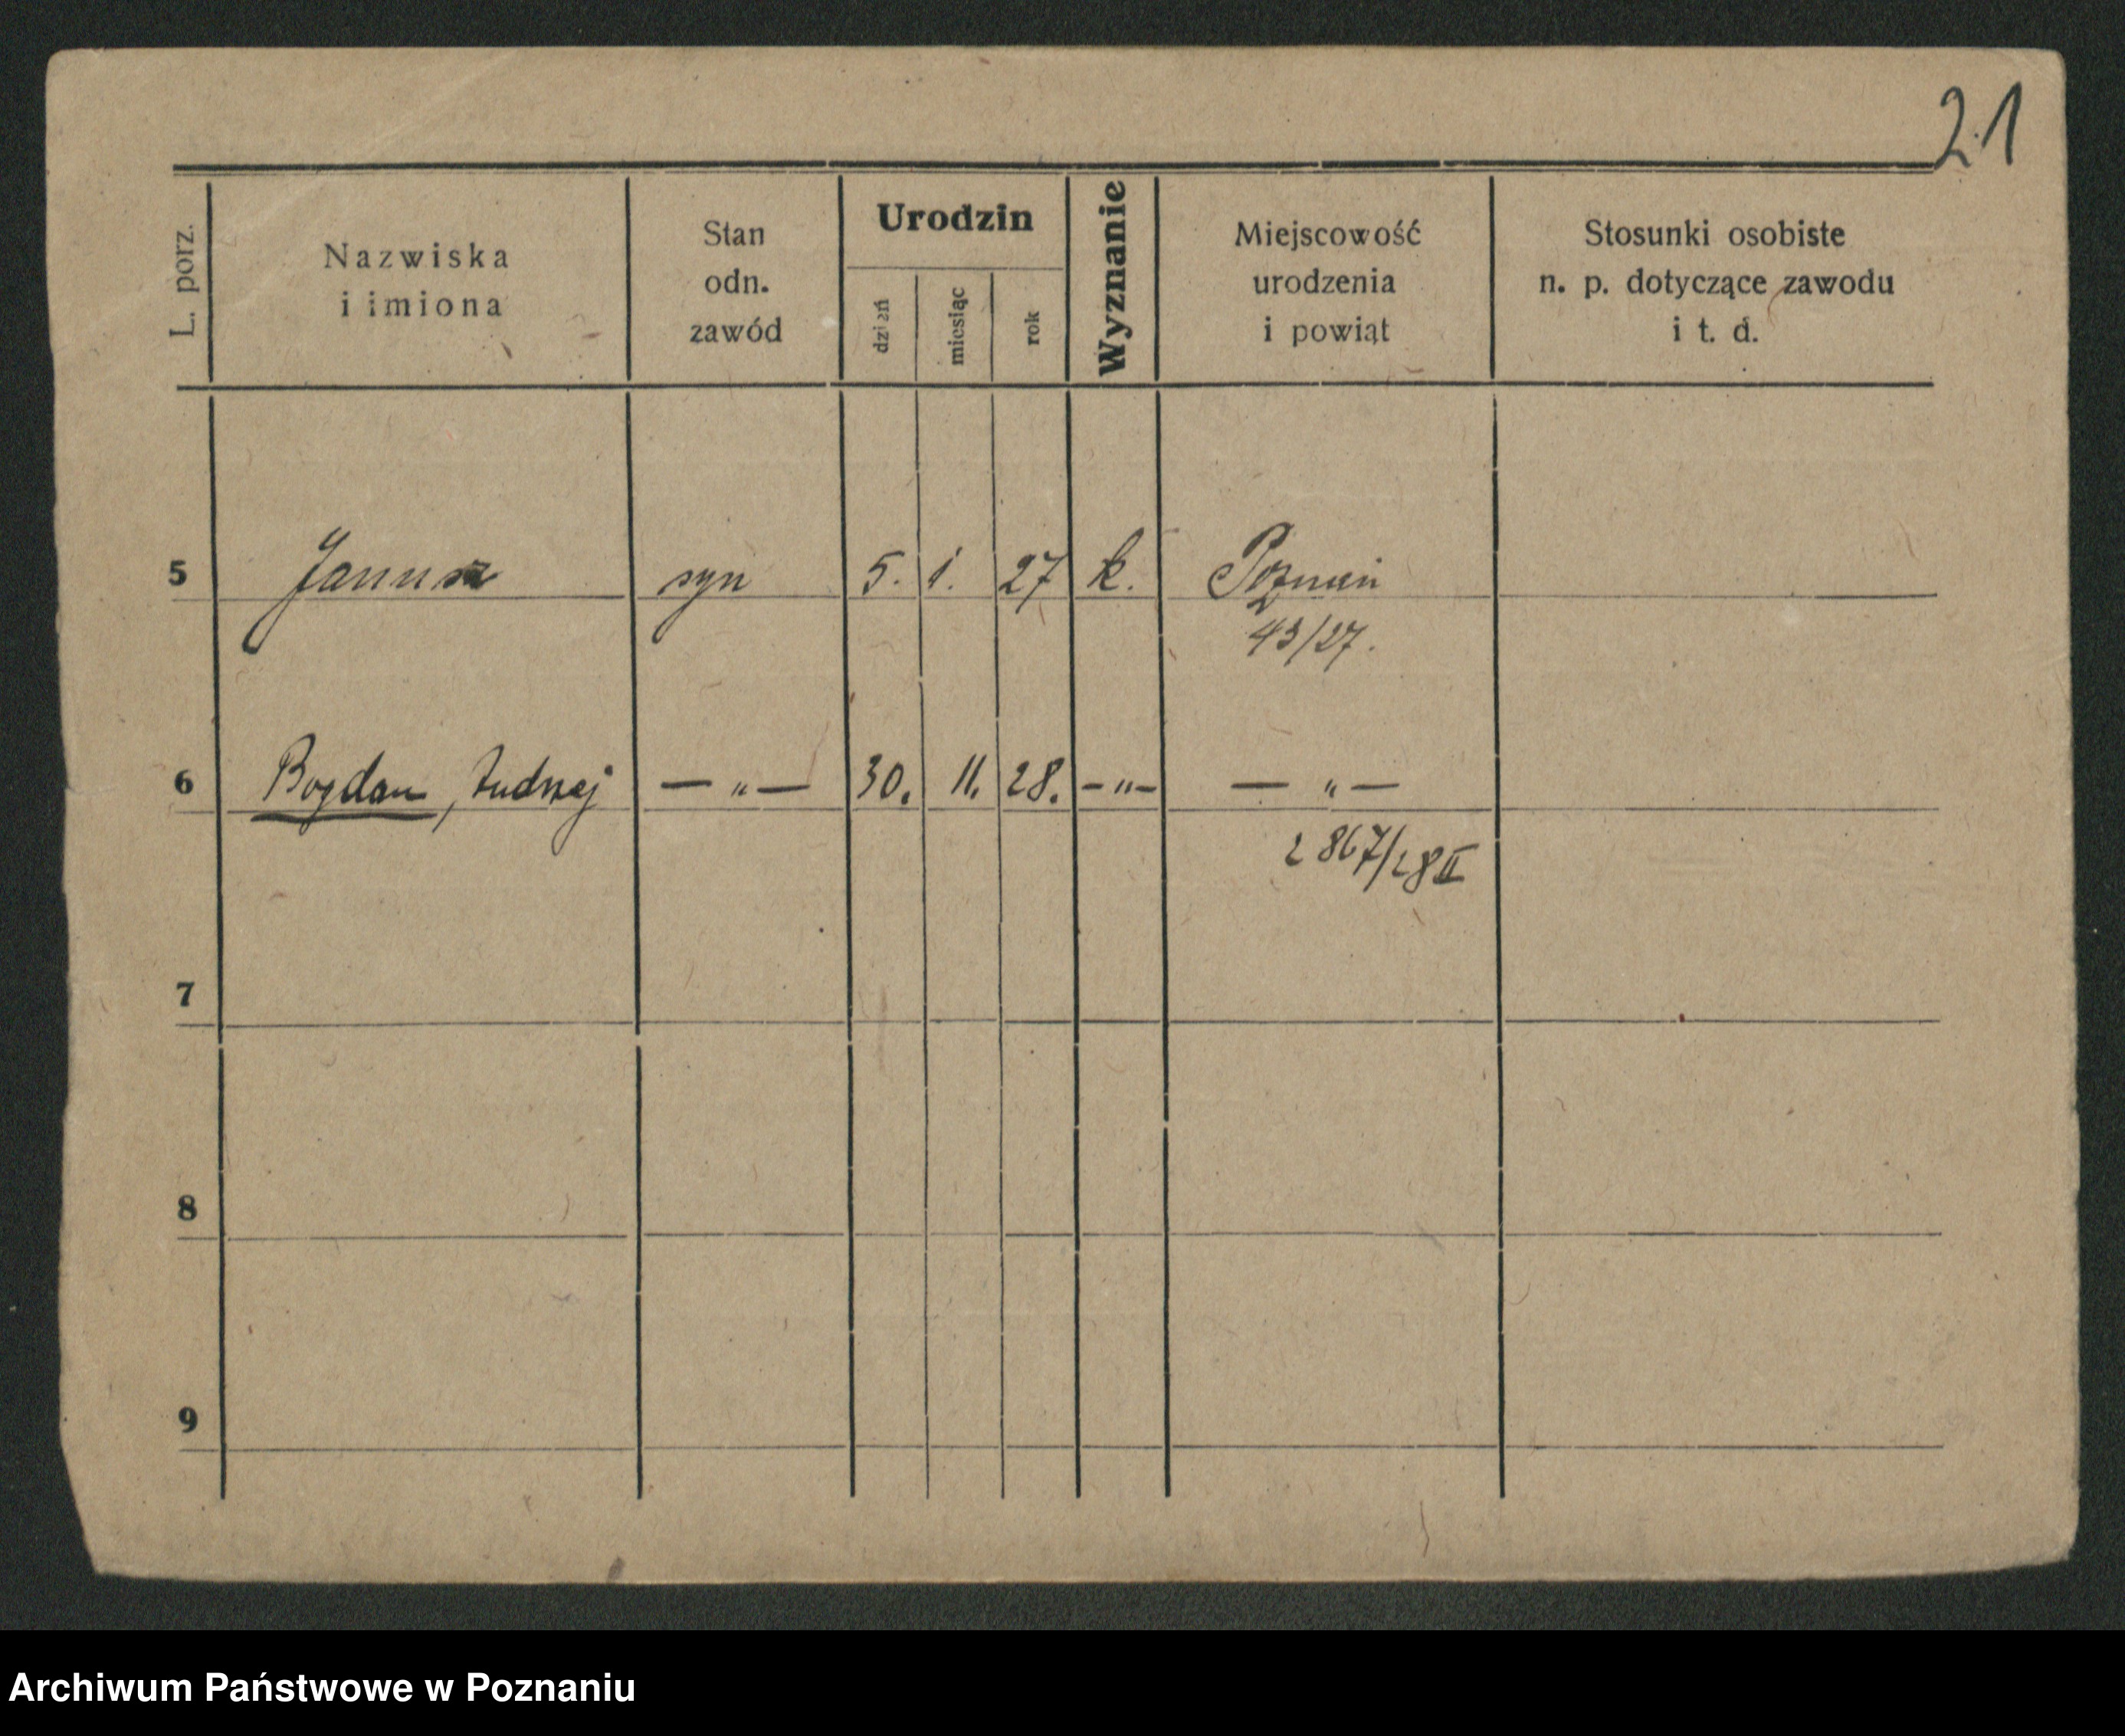 21
L. porz.
Nazwiska
i imiona
Stan
odn.
zawód
Urodzin
dzień
miesiąc
rok
Wyznanie
Miejscowość
urodzenia
i powiąt
Stosunki osobiste
n. p. dotyczące zawodu
i t. d.
5 Janusz syn 5. 1. 27 k. Poznań
43/27.
6 Bogdan, Andrzej — „ — 30. 11. 28. – „ – — „ —
2867/28 II
7
8
9
Archiwum Państwowe w Poznaniu